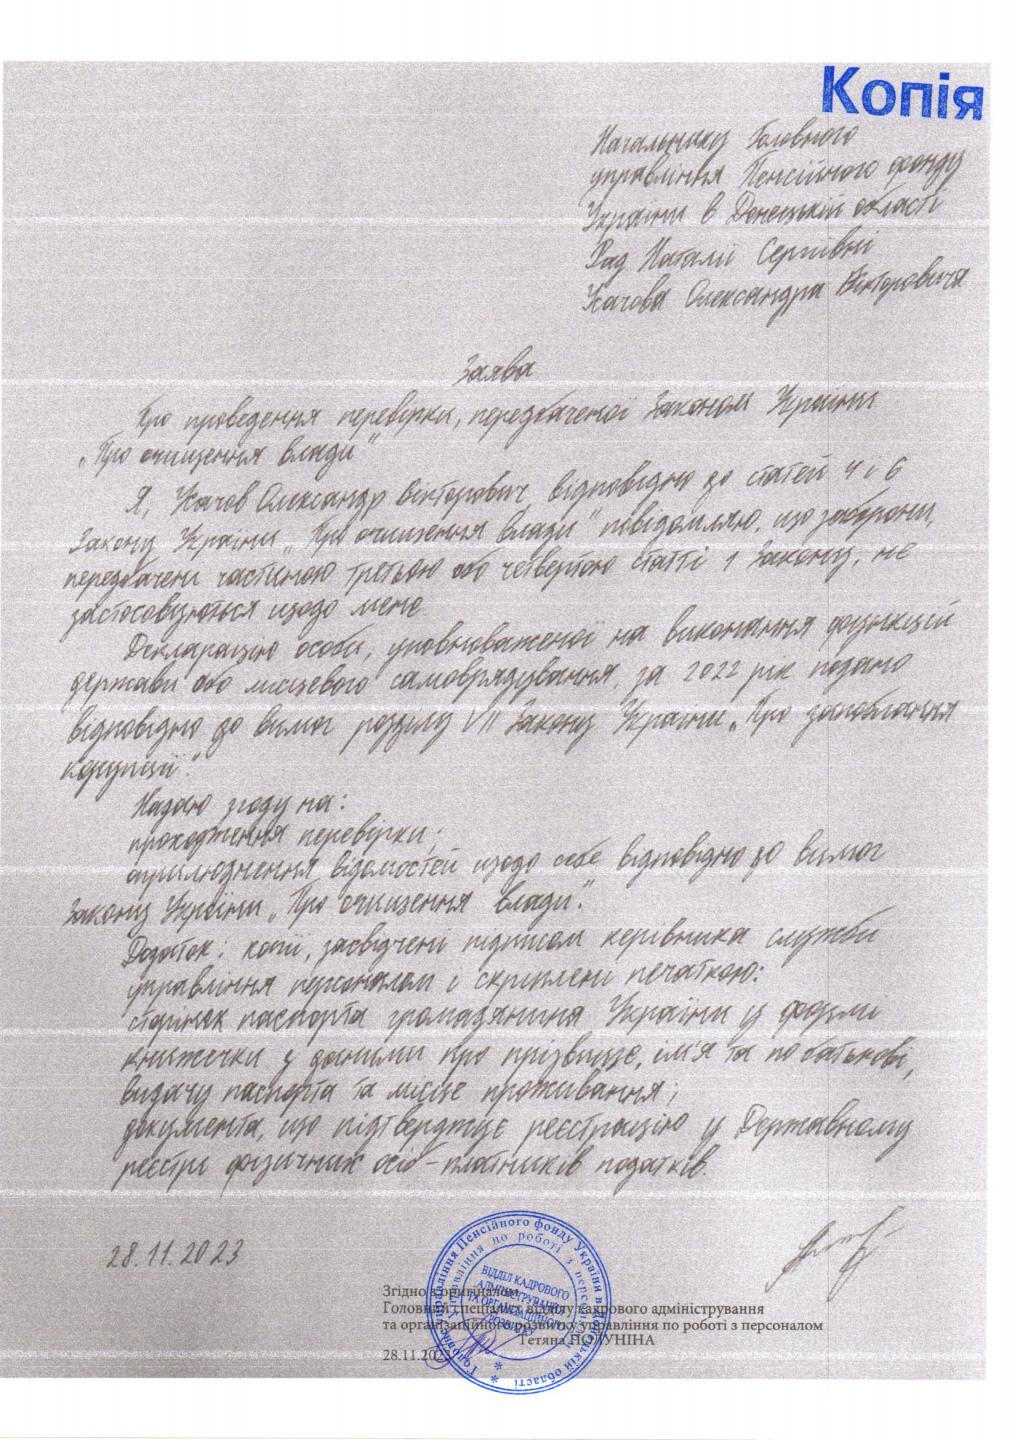 Копія
Начальнику Головного
управління Пенсійного фонду
України в Донецькій області
Рад Наталії Сергіївні
Усачова Олександра Вікторовича
Заява
Про проведення перевірки, передбаченої Законом України
„Про очищення влади"
Я, Усачов Олександр Вікторович відповідно до статей 4 і 6
Закону України „Про очищення влади" повідомляю, що заборони,
передбачені частиною третьою або четвертою статті 1 Закону, не
застосовуються щодо мене.
Декларацію особи, уповноваженої на виконання функцій
держави або місцевого самоврядування, за 2022 рік подано
відповідно до вимог розділу VII Закону України „Про запобігання
корупції".
Надаю згоду на:
проходження перевірки;
оприлюднення відомостей щодо себе відповідно до вимог
Закону України „Про очищення влади".
Додаток: копії, засвідчені підписом керівника служби
управління персоналом і скріплені печаткою:
сторінок паспорта громадянина України у формі
книжечки з даними про прізвище, ім'я та по батькові,
видачу паспорта та місце проживання;
документа, що підтверджує реєстрацію у Державному
реєстрі фізичних осіб-платників податків.
28.11.2023
Згідно з оригіналом
Головний спеціаліст відділу кадрового адміністрування
та організаційного розвитку управління по роботі з персоналом
Тетяна ПОЛУНІНА
28.11.2023
Головне управління Пенсійного фонду України в Донецькій області
Управління по роботі з персоналом
ВІДДІЛ КАДРОВОГО
АДМІНІСТРУВАННЯ
ТА ОРГАНІЗАЦІЙНОГО
РОЗВИТКУ